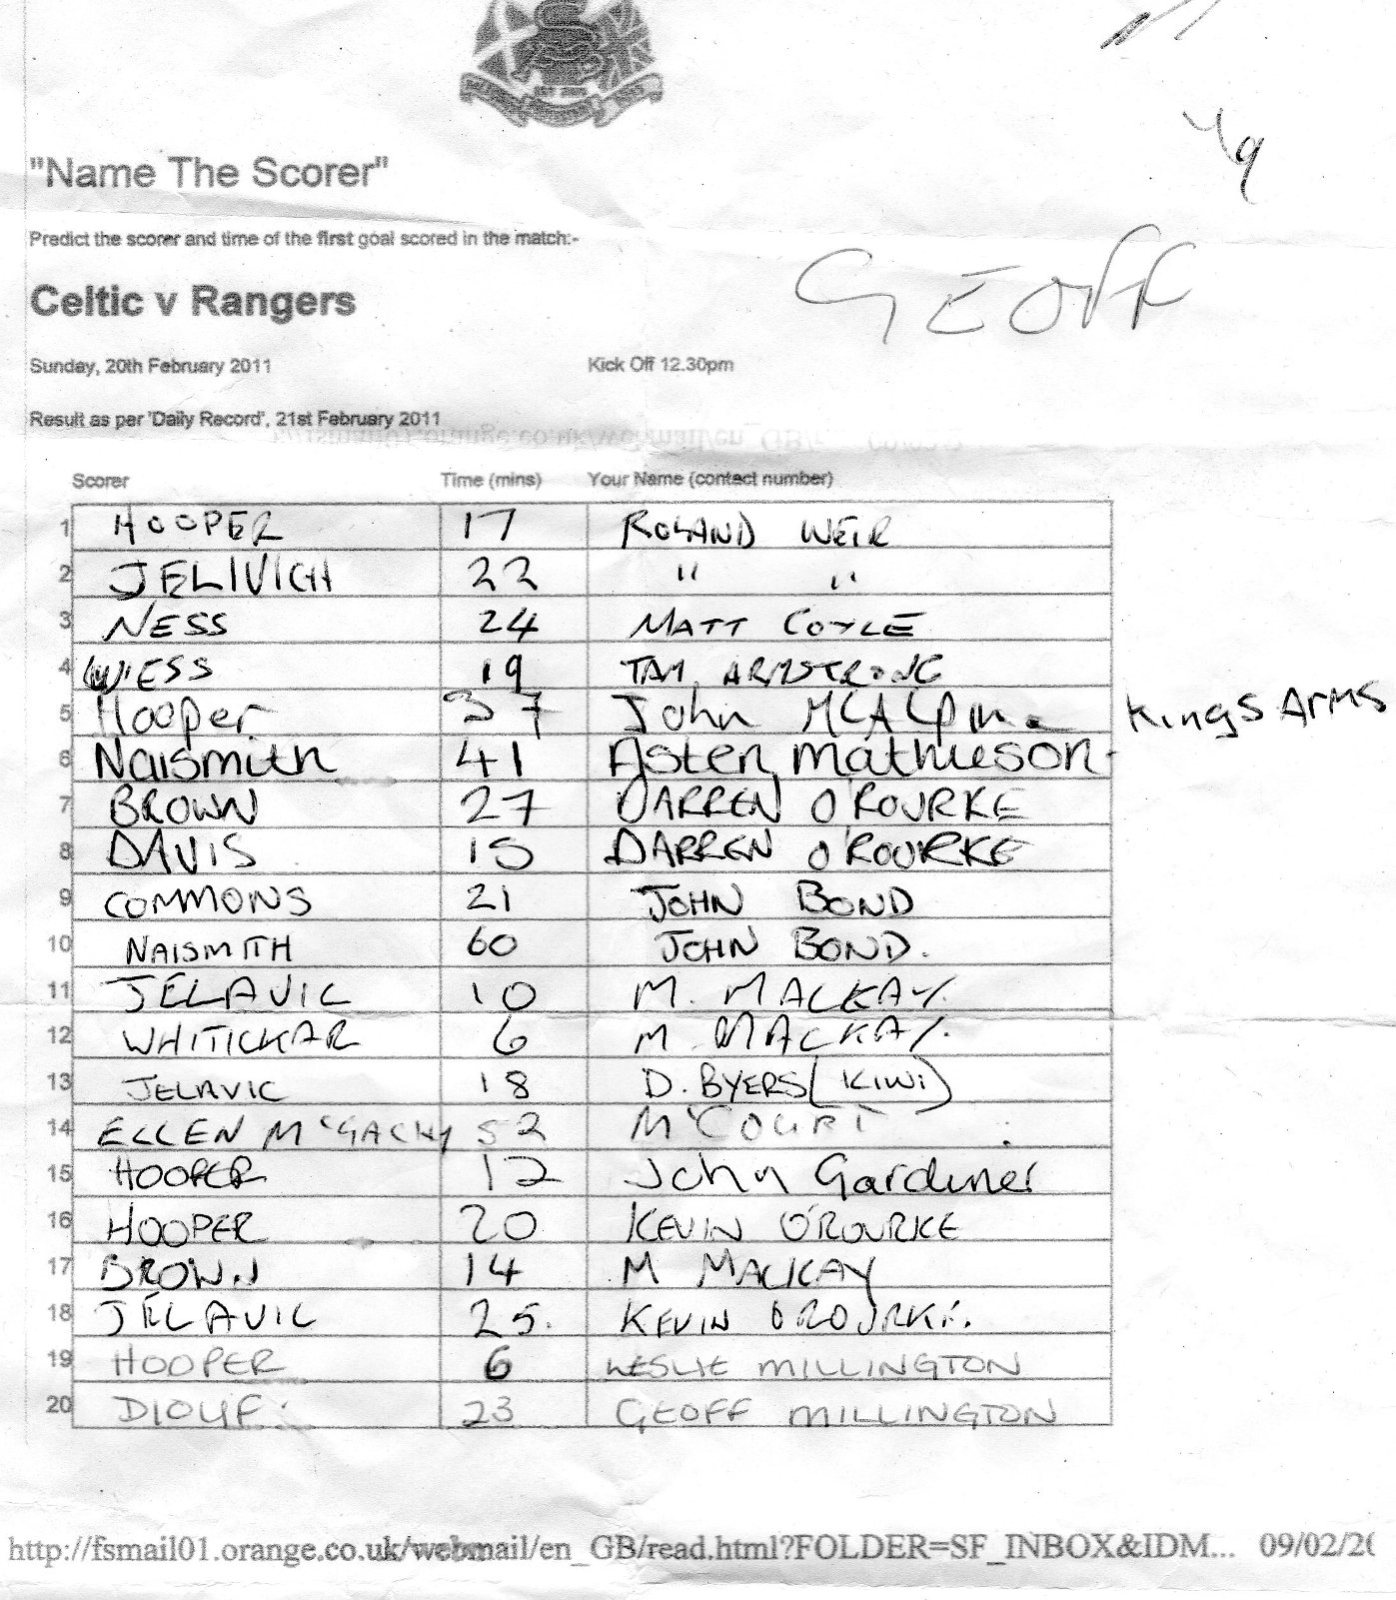 "Name The Scorer"
Predict the scorer and time of the first goal scored in the match:-
GEOFF
Celtic v Rangers
Sunday, 20th February 2011 Kick Off 12.30pm
Result as per 'Daily Record', 21st February 2011
Scorer Time (mins) Your Name (contact number)
1 HOOPER 17 ROLAND WEIR
2 JELIVICH 22 " "
3 NESS 24 MATT COYLE
4 WESS 19 TAM ARMSTRONG
5 Hooper 37 John MCALpine Kings Arms
6 Naismith 41 Asten Mathieson
7 BROWN 27 DARREN O'ROURKE
8 DAVIS 15 DARREN O'ROURKE
9 COMMONS 21 JOHN BOND
10 NAISMITH 60 JOHN BOND.
11 JELAVIC 10 M. MACKAY.
12 WHITICKAR 6 M MACKAY.
13 JELAVIC 18 D. BYERS (KIWI)
14 ELLEN McGACHY 52 McCOURT
15 HOOPER 12 John Gardiner
16 HOOPER 20 KEVIN O'ROURKE
17 BROWN 14 M MACKAY
18 JELAVIC 25. KEVIN OROURKE.
19 HOOPER 6 LESLIE MILLINGTON
20 DIOUF 23 GEOFF MILLINGTON
http://fsmail01.orange.co.uk/webmail/en_GB/read.html?FOLDER=SF_INBOX&IDM... 09/02/20